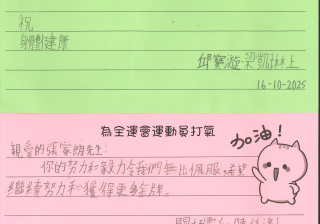 祝
身體健康
邱寶漩、梁凱琳上
16-10-2025
為全運會運動員打氣
加油!
親愛的張家朗先生:
你的努力和毅力令我們無比佩服,希望
繼續努力和獲得更多金牌。